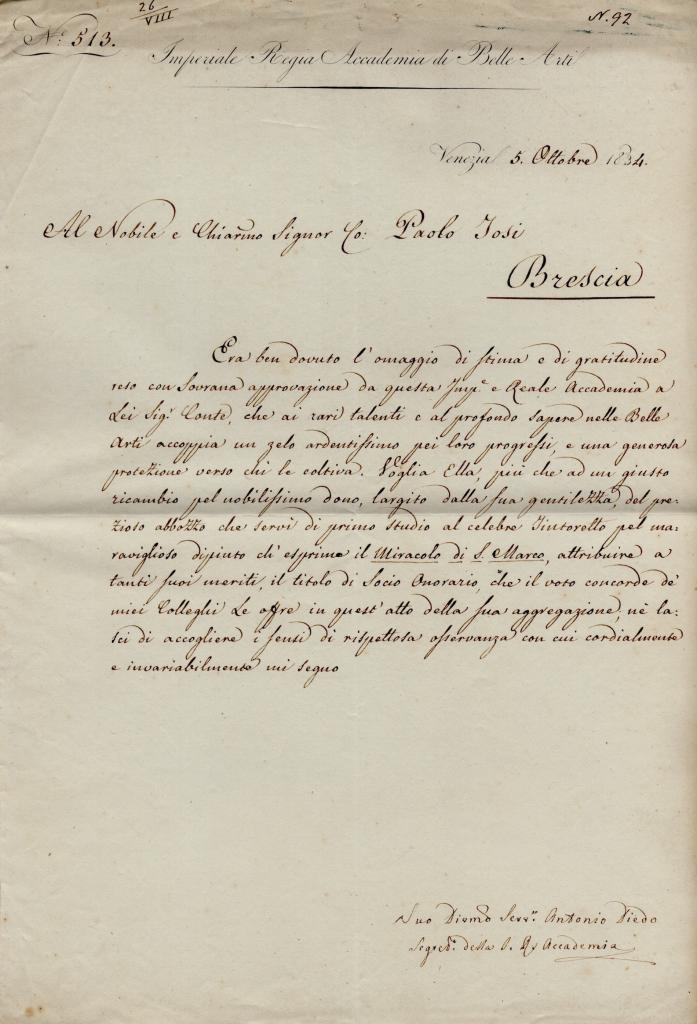 26
VIII
N. 92
N.º 513.
Imperiale Regia Accademia di Belle Arti
Venezia 5. Ottobre 1834.
Al Nobile e Chiarmo Signor Co: Paolo Tosi
Brescia
Era ben dovuto l'omaggio di stima e di gratitudine
reso con Sovrana approvazione da questa Imp.e e Reale Accademia a
Lei Sig.r Conte, che ai rari talenti e al profondo sapere nelle Belle
Arti accoppia un zelo ardentissimo pei loro progressi, e una generosa
protezione verso chi le coltiva. Voglia Ella più che ad un giusto
ricambio pel nobilissimo dono, largito dalla sua gentilezza, del pre-
zioso abbozzo che servì di primo studio al celebre Tintoretto pel ma-
raviglioso dipinto ch'esprime il Miracolo di S. Marco, attribuire a
tanti suoi meriti, il titolo di Socio Onorario, che il voto concorde de'
miei Colleghi Le offre in quest'atto della sua aggregazione, nè la-
sci di accogliere i sensi di rispettosa osservanza con cui cordialmente
e invariabilmente mi segno
Suo Divmo Serv.r Antonio Diedo
Segret.o della I. R. Accademia